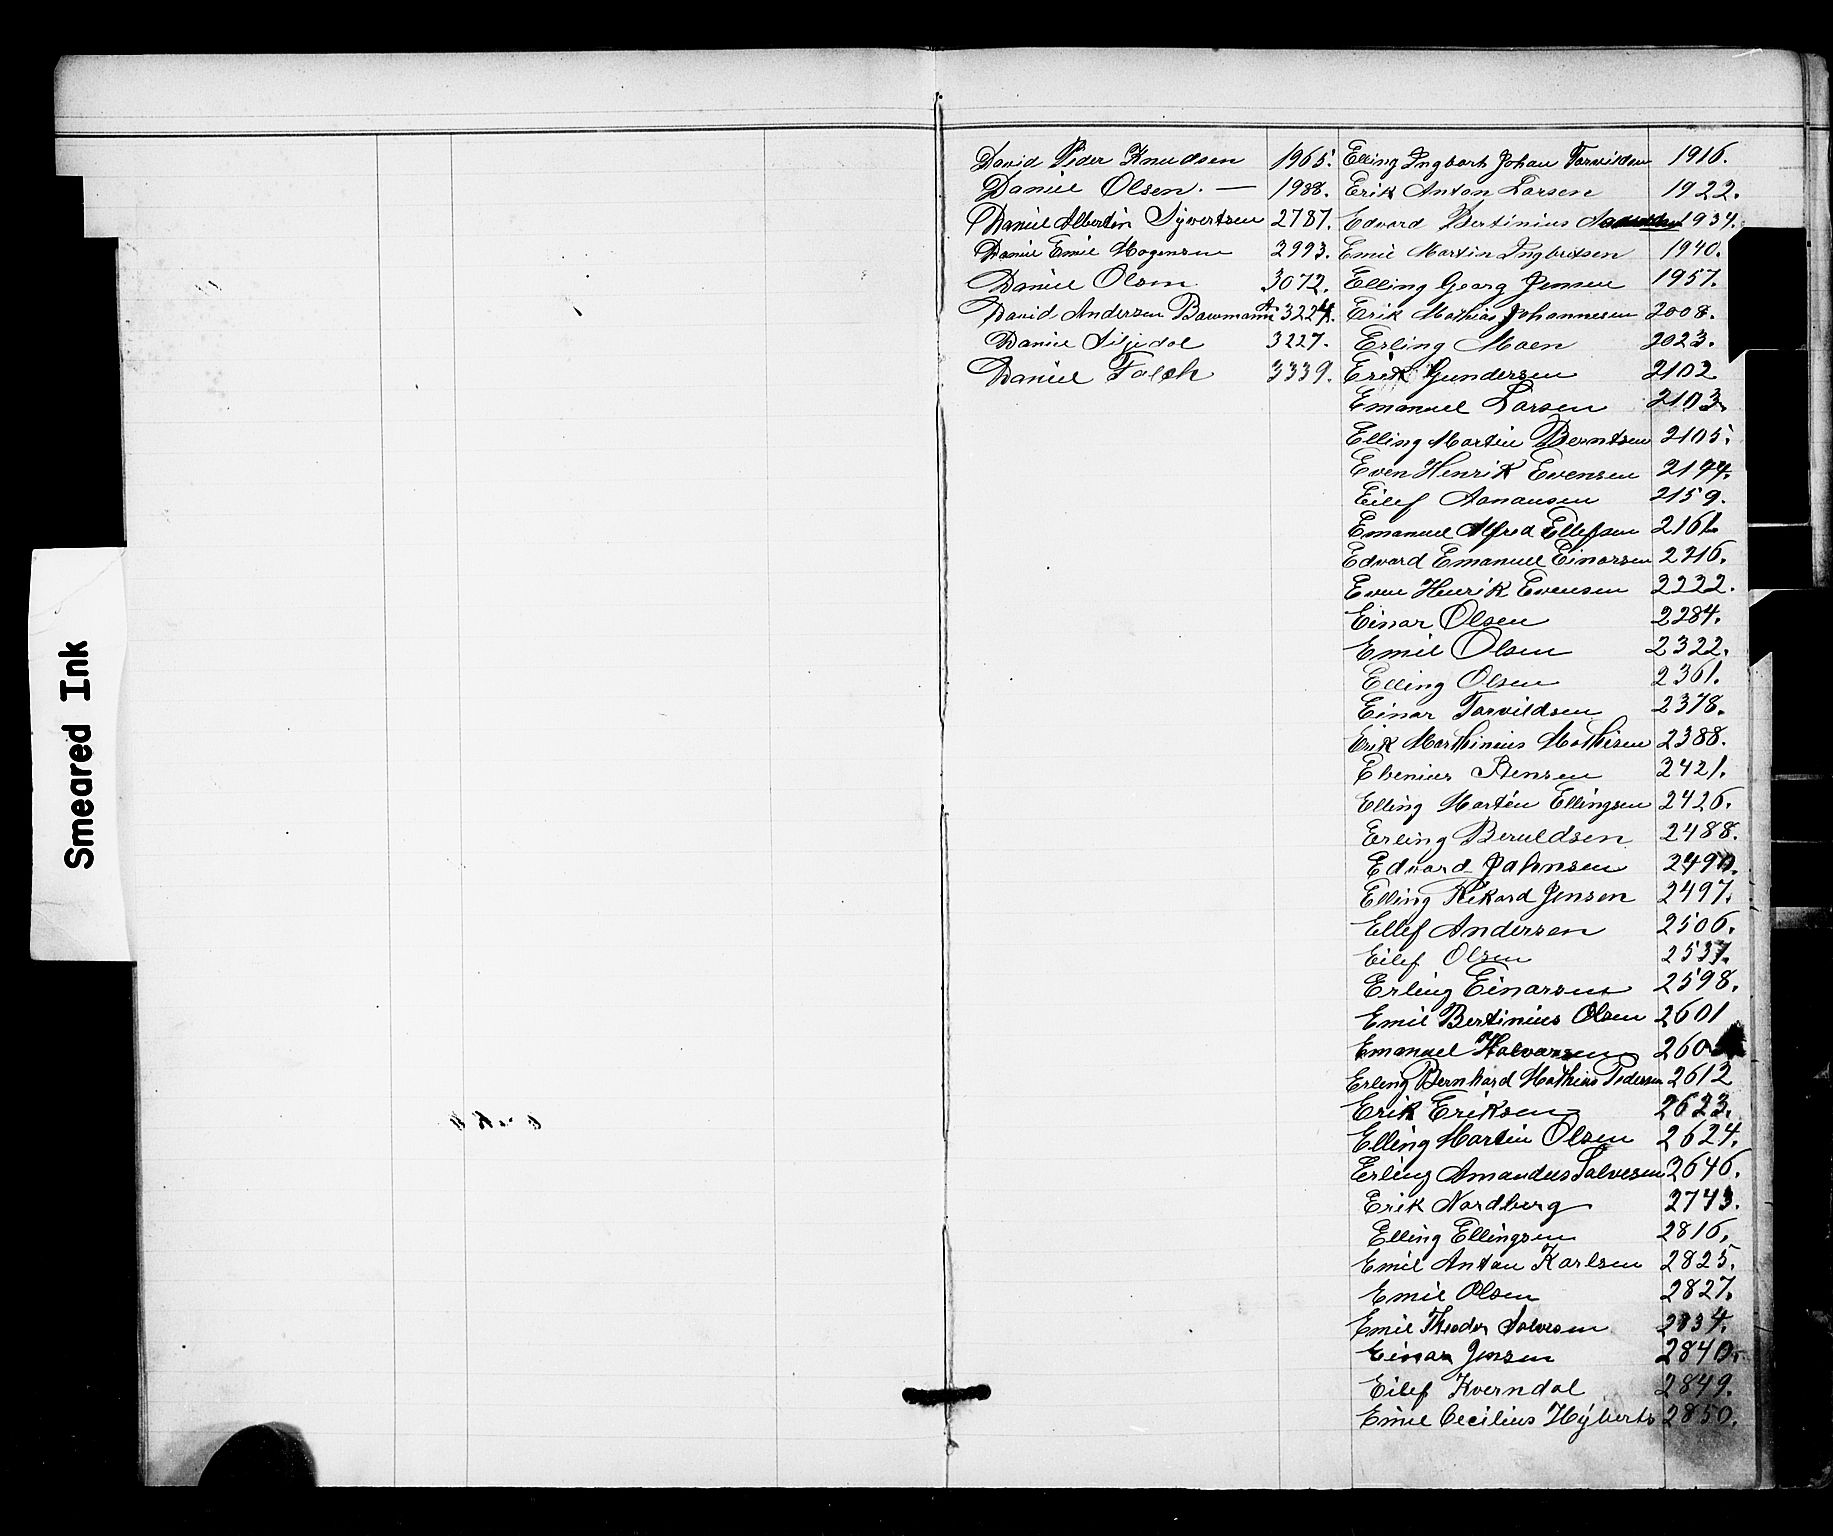 Smeared Ink
David Peder Knudsen 1965.
Daniel Olsen. — 1988.
Daniel Albertin Syvertsen 2787.
Daniel Emil Mogensen 2993.
Daniel Olsen 3072.
David Andersen Bawmann 3224.
Daniel Siljedal 3227.
Daniel Falch 3339.
Elling Ingbart Johan Torvildsen 1916.
Erik Anton Larsen 1922.
Edvard Bertinius 1934.
Emil Martin Ingbretsen 1940.
Elling Georg Jensen 1957.
Erik Mathias Johannesen 2008.
Erling Moen 2023.
Erik Gundersen 2102
Emanuel Larsen 2103.
Elling Martin Berntsen 2105.
Even Henrik Evensen 2194.
Eilef Aanansen 2159.
Emanuel Alfred Ellefsen 2161.
Edvard Emanuel Einarsen 2216.
Even Henrik Evensen 2222.
Einar Olsen 2284.
Emil Olsen 2322.
Elling Olsen 2361.
Einar Torvildsen 2378.
Erik Marthinius Mathisen 2388.
Elvenius Jensen 2421.
Elling Martin Ellingsen 2426.
Erling Beruldsen 2488.
Edvard Johnsen 2490.
Elling Rikard Jensen 2497.
Ellef Andersen 2506.
Eilef Olsen 2537.
Erling Einarsen 2598.
Emil Bertinius Olsen 2601
Emanuel Halvorsen
Erling Bernhard Mathias Pedersen 2612
Erik Eriksen 2623.
Elling Martin Olsen 2624.
Erling Amandus Salvesen 2646.
Erik Nordberg 2743.
Elling Ellingsen 2816.
Emil Anton Karlsen 2825.
Emil Olsen 2827.
Emil Theodor Salvesen 2834.
Einar Jensen 2840.
Eilef Kverndal 2849.
Emil Cecilius Hyberts 2850.